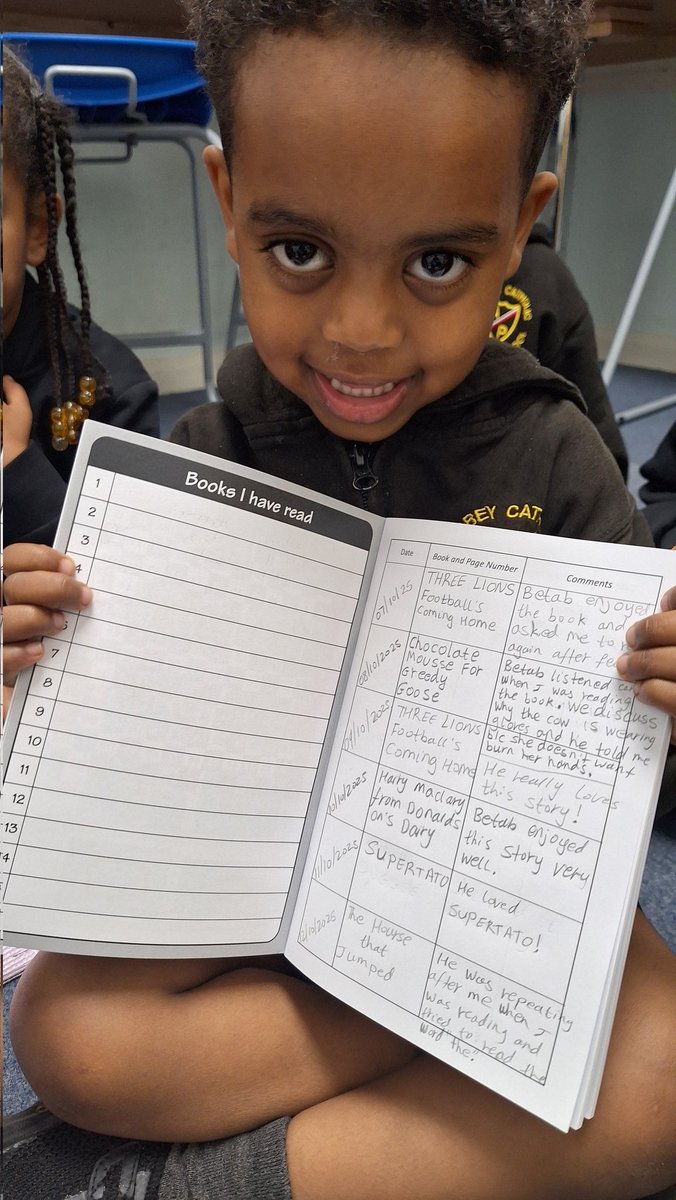 CATH
P
BEY CAT
Books I have read
1
2
3
4
6
7
8
9
10
11
12
13
4
Date
Book and Page Number
Comments
07/10/25
THREE LIONS
Football's
Coming Home
Betab enjoyed
the book and
asked me to
again after
08/10/2025
Chocolate
Mousse For
Greedy
Goose
Betab listened
when I was reading
the book. We discuss
why the cow is wearing
gloves and he told me
b/c she doesn't want
burn her hands.
09/10/2025
THREE LIONS
Football's
Coming Home
He really loves
this story!
10/10/2025
Hairy Maclary
from Donalds
on's Dairy
Betab enjoyed
this story very
well.
11/10/2025
SUPERTATO
He loved
SUPERTATO!
12/10/2025
The House
that
Jumped
He was repeating
after me when I
was reading and
tried to read the
word "the."